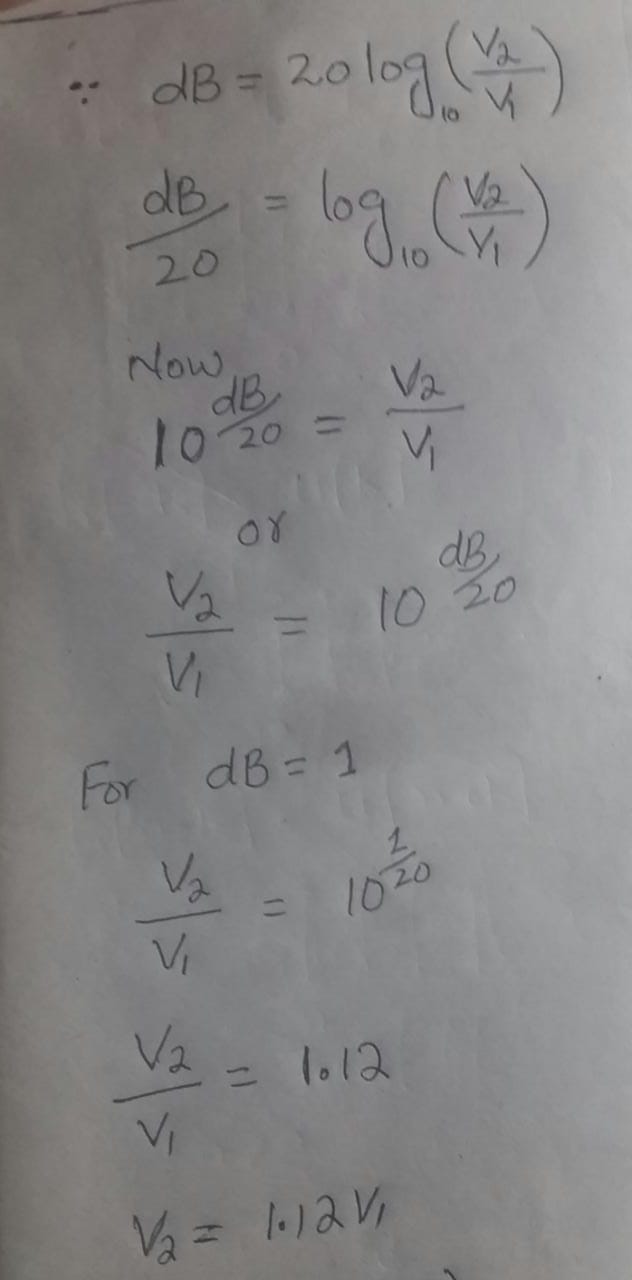 ∵ dB = 20 log₁₀ (V₂/V₁)
dB/20 = log₁₀ (V₂/V₁)
Now
10^(dB/20) = V₂/V₁
or
V₂/V₁ = 10^(dB/20)
For dB = 1
V₂/V₁ = 10^(1/20)
V₂/V₁ = 1.12
V₂ = 1.12 V₁